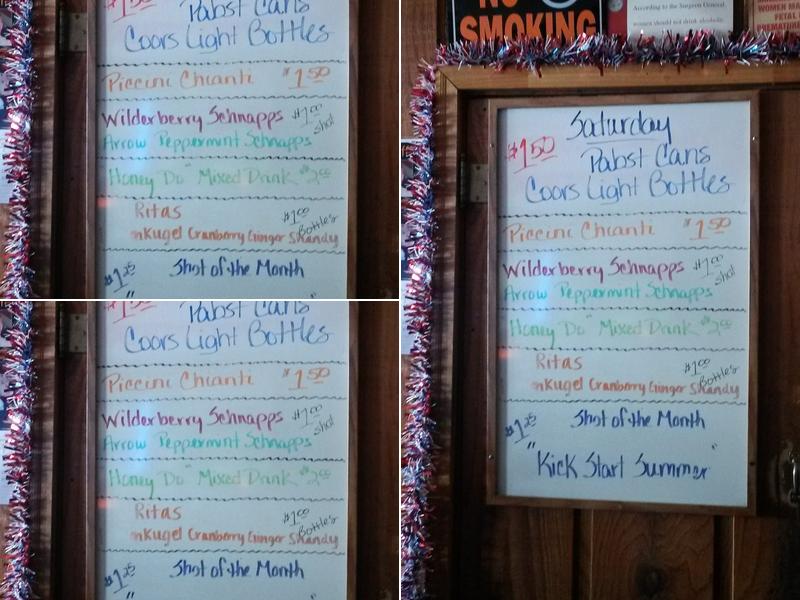 $1.50 Pabst Cans
Coors Light Bottles
Piccini Chianti $1.50
Wilderberry Schnapps $1.00
Arrow Peppermint Schnapps shot
"Honey Do" Mixed Drink $2.00
Ritas $1.00
nKugel Cranberry Ginger Shandy Bottles
$1.25 Shot of the Month
$1.50 Pabst Cans
Coors Light Bottles
Piccini Chianti $1.50
Wilderberry Schnapps $1.00
Arrow Peppermint Schnapps shot
"Honey Do" Mixed Drink $2.00
Ritas $1.00
nKugel Cranberry Ginger Shandy Bottles
$1.25 Shot of the Month
NO
SMOKING
According to the Surgeon General,
women should not drink alcoholic
WOMEN MA
FETAL
Saturday
$1.50 Pabst Cans
Coors Light Bottles
Piccini Chianti $1.50
Wilderberry Schnapps $1.00
Arrow Peppermint Schnapps shot
"Honey Do" Mixed Drink $2.00
Ritas $1.00
nKugel Cranberry Ginger Shandy Bottles
$1.25 Shot of the Month
"Kick Start Summer"